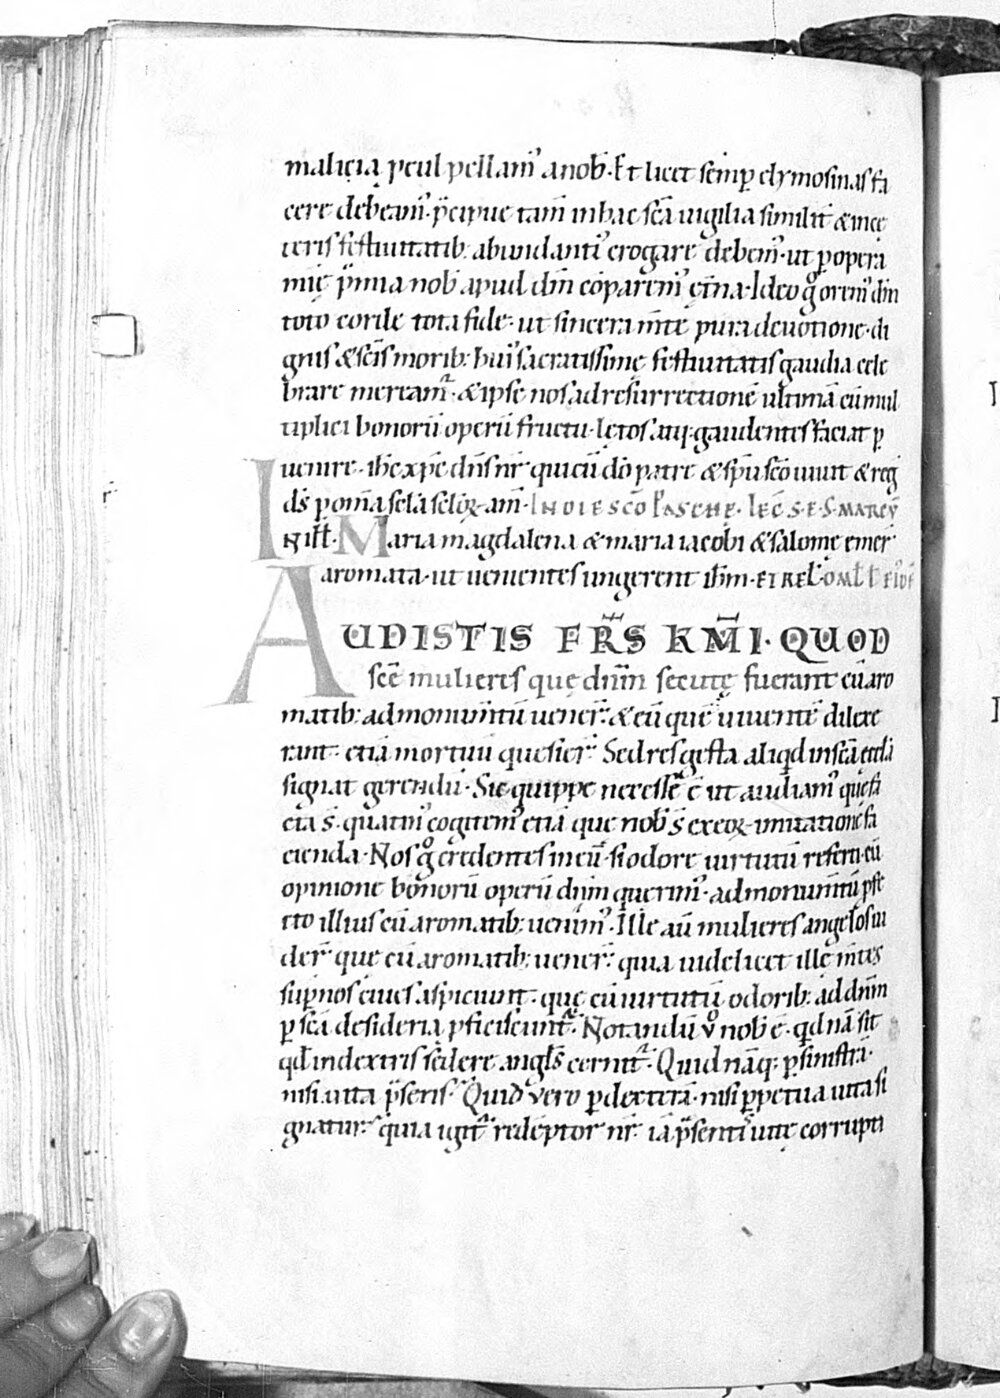 malicia ꝓcul pellam᷒ a nob̄. Et licet semꝑ elymosinas fa
cere debeam᷒. p̄cipue tam̄ in hac sc̄a uigilia similit̄ & in ce
teris festiuitatib; abundanti᷒ erogare debem᷒. ut ꝑ opera
mię p̄mia nob̄ apud dn̄m cōparem᷒ et̄na. Ideo g̊ orem᷒ dn̄m
toto corde tota fide. ut sincera m̄te pura deuotione. di
gnis & sc̄is morib; hui᷒ sacratissimę festiuitatis gaudia cele
brare mereamr̄. & ipse nos ad resurrectionē ultimā cū mul
tiplici bonorū operū fructu. lętos atq; gaudentes faciat ꝑ
uenire. ih̄c xp̄c dn̄s nr̄ qui cū dō patre & sp̄u sc̄o uiuit & reg̅
ds̄ ꝑ om̄a sc̄la sc̄lorꝝ am̄. IN DIE SC̄O PASCHE. LEC̄. S. E. S. MARCŪ
IN ill̄. Maria magdalena & maria iacobi & salomę emer̄
aromata. ut uenientes ungerent ih̄m. ET REL̄. OML̄.
AUDISTIS FR̄S KM̄I. QUOD
sc̄e mulieres quę dn̄m secutę fuerant cū aro
matib; ad monum̄tū uener̄. & cū quē uiuentē dilexe
rant. etiā mortuū quesier̄. Sed res gesta aliqd̄ in sc̄a eccl̄a
signat gerendū. Sic quippe necesse ē ut audiam᷒ quę fa
cta s̄. quatin᷒ cogitem᷒ etiā que nob̄ s̄ ex eoꝝ imitatione fa
cienda. Nos g̊ credentes in eū. si odore uirtutū referti. cū
opinione bonorū operū dn̄m querim᷒. ad monum̄tū ꝓfe
cto illius cū aromatib; uenim᷒. Ille aū mulieres angelos ui
der̄. que cū aromatib; uener̄. quia uidelicet ille m̄tes
suꝑnos ciues aspiciunt. quę cū uirtutū odorib; ad dn̄m
ꝑ sc̄a desideria ꝓficiscunt̄. Notandū v̊ nob̄ ē. qd̄nā sit
qd̄ in dextris sedere angl̄s cernit̄. Quid nāq; ꝑ sinistrā.
nisi uita p̄sens. Quid vero ꝑ dexterā. nisi ꝑpetua uita si
gnatur. quia igit̄ redēptor nr̄. iā p̄senti᷒ uitę corrupti